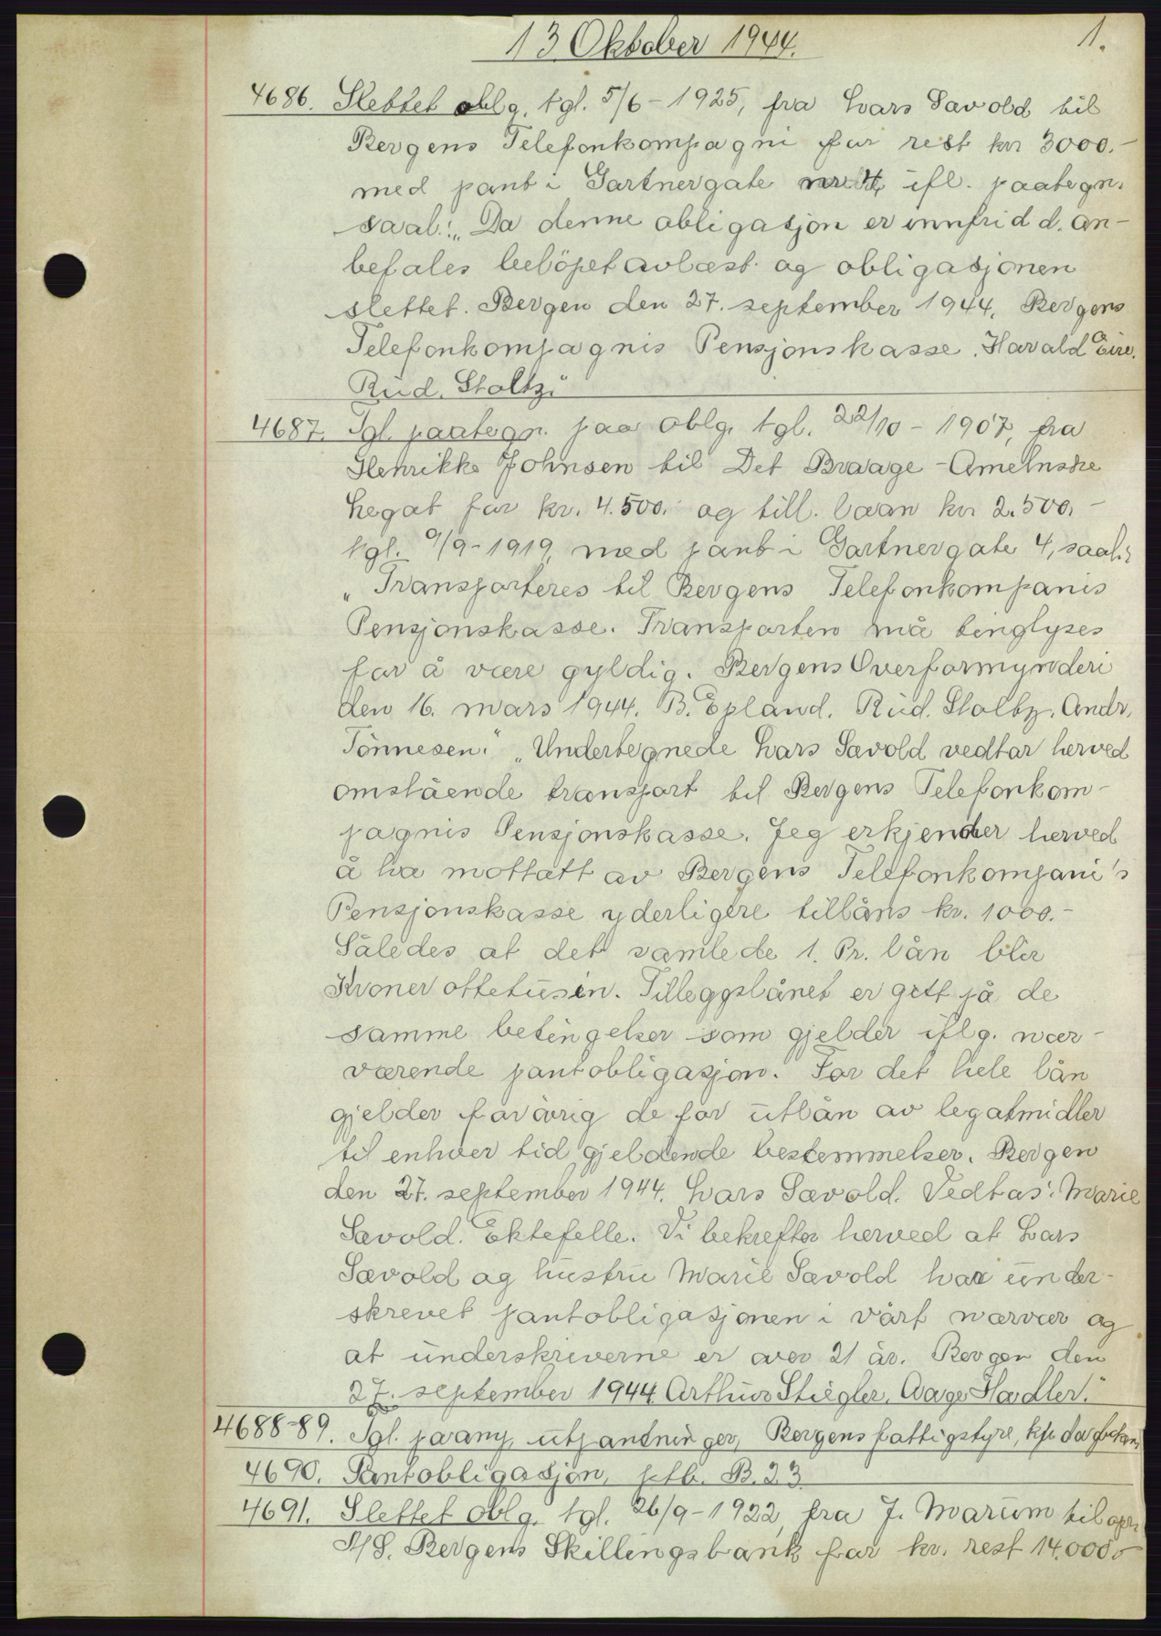 13 Oktober 1944.
1.
4686. Slettet oblg. tgl. 5/6 - 1925, fra Lars Sævold til
Bergens Telefonkompagni for rest kr 3000.-
med pant i Gartnergate nr 4, ifl. paategn.
saal.: „Da denne obligasjon er innfridd. an-
befales beløpet avlæst og obligasjonen
slettet. Bergen den 27. september 1944. Bergens
Telefonkompagnis Pensjonskasse. Harald
Rud. Stoltz."
4687. Tgl. paategn. paa oblg. tgl. 22/10 - 1907, fra
Henrikke Johnsen til Det Braage-Amelnske
Legat for kr. 4.500. og till. laan kr 2.500.-
tgl. 9/9-1919, med pant i Gartnergate 4, saal.:
„Transporteres til Bergens Telefonkompanis
Pensjonskasse. Transporten må tinglyses
for å være gyldig. Bergens Overformynderi
den 16. mars 1944. B. Epland. Rud. Stoltz. Andr.
Tönnesen." „Undertegnede Lars Sævold vedtar herved
omstående transport til Bergens Telefonkom-
pagnis Pensjonskasse. Jeg erkjender herved
å ha mottatt av Bergens Telefonkompani's
Pensjonskasse yderligere tillåns kr. 1000.-
Således at det samlede 1. Pr. lån blir
Kroner ottetusin. Tilleggslånet er gitt på de
samme betingelser som gjelder iflg. nær-
værende pantobligasjon. For det hele lån
gjelder forøvrig de for utlån av legatmidler
til enhver tid gjeldende bestemmelser. Bergen
den 27. september 1944. Lars Sævold. Vedtas: Marie
Sævold. Ektefelle. Vi bekrefter herved at Lars
Sævold og hustru Marie Sævold har under-
skrevet pantobligasjonen i vårt nærvær og
at underskriverne er over 21 år. Bergen den
27. september 1944. Arthur Stiegler. Aage Hadler."
4688-89. Tgl. paany, utpantninger, Bergens fattigstyre,
4690. Pantobligasjon, ptb. B. 23
4691. Slettet oblg. tgl. 26/9 - 1922, fra J. Marum til
A/S. Bergens Skillingsbank for kr. rest 14.000.-